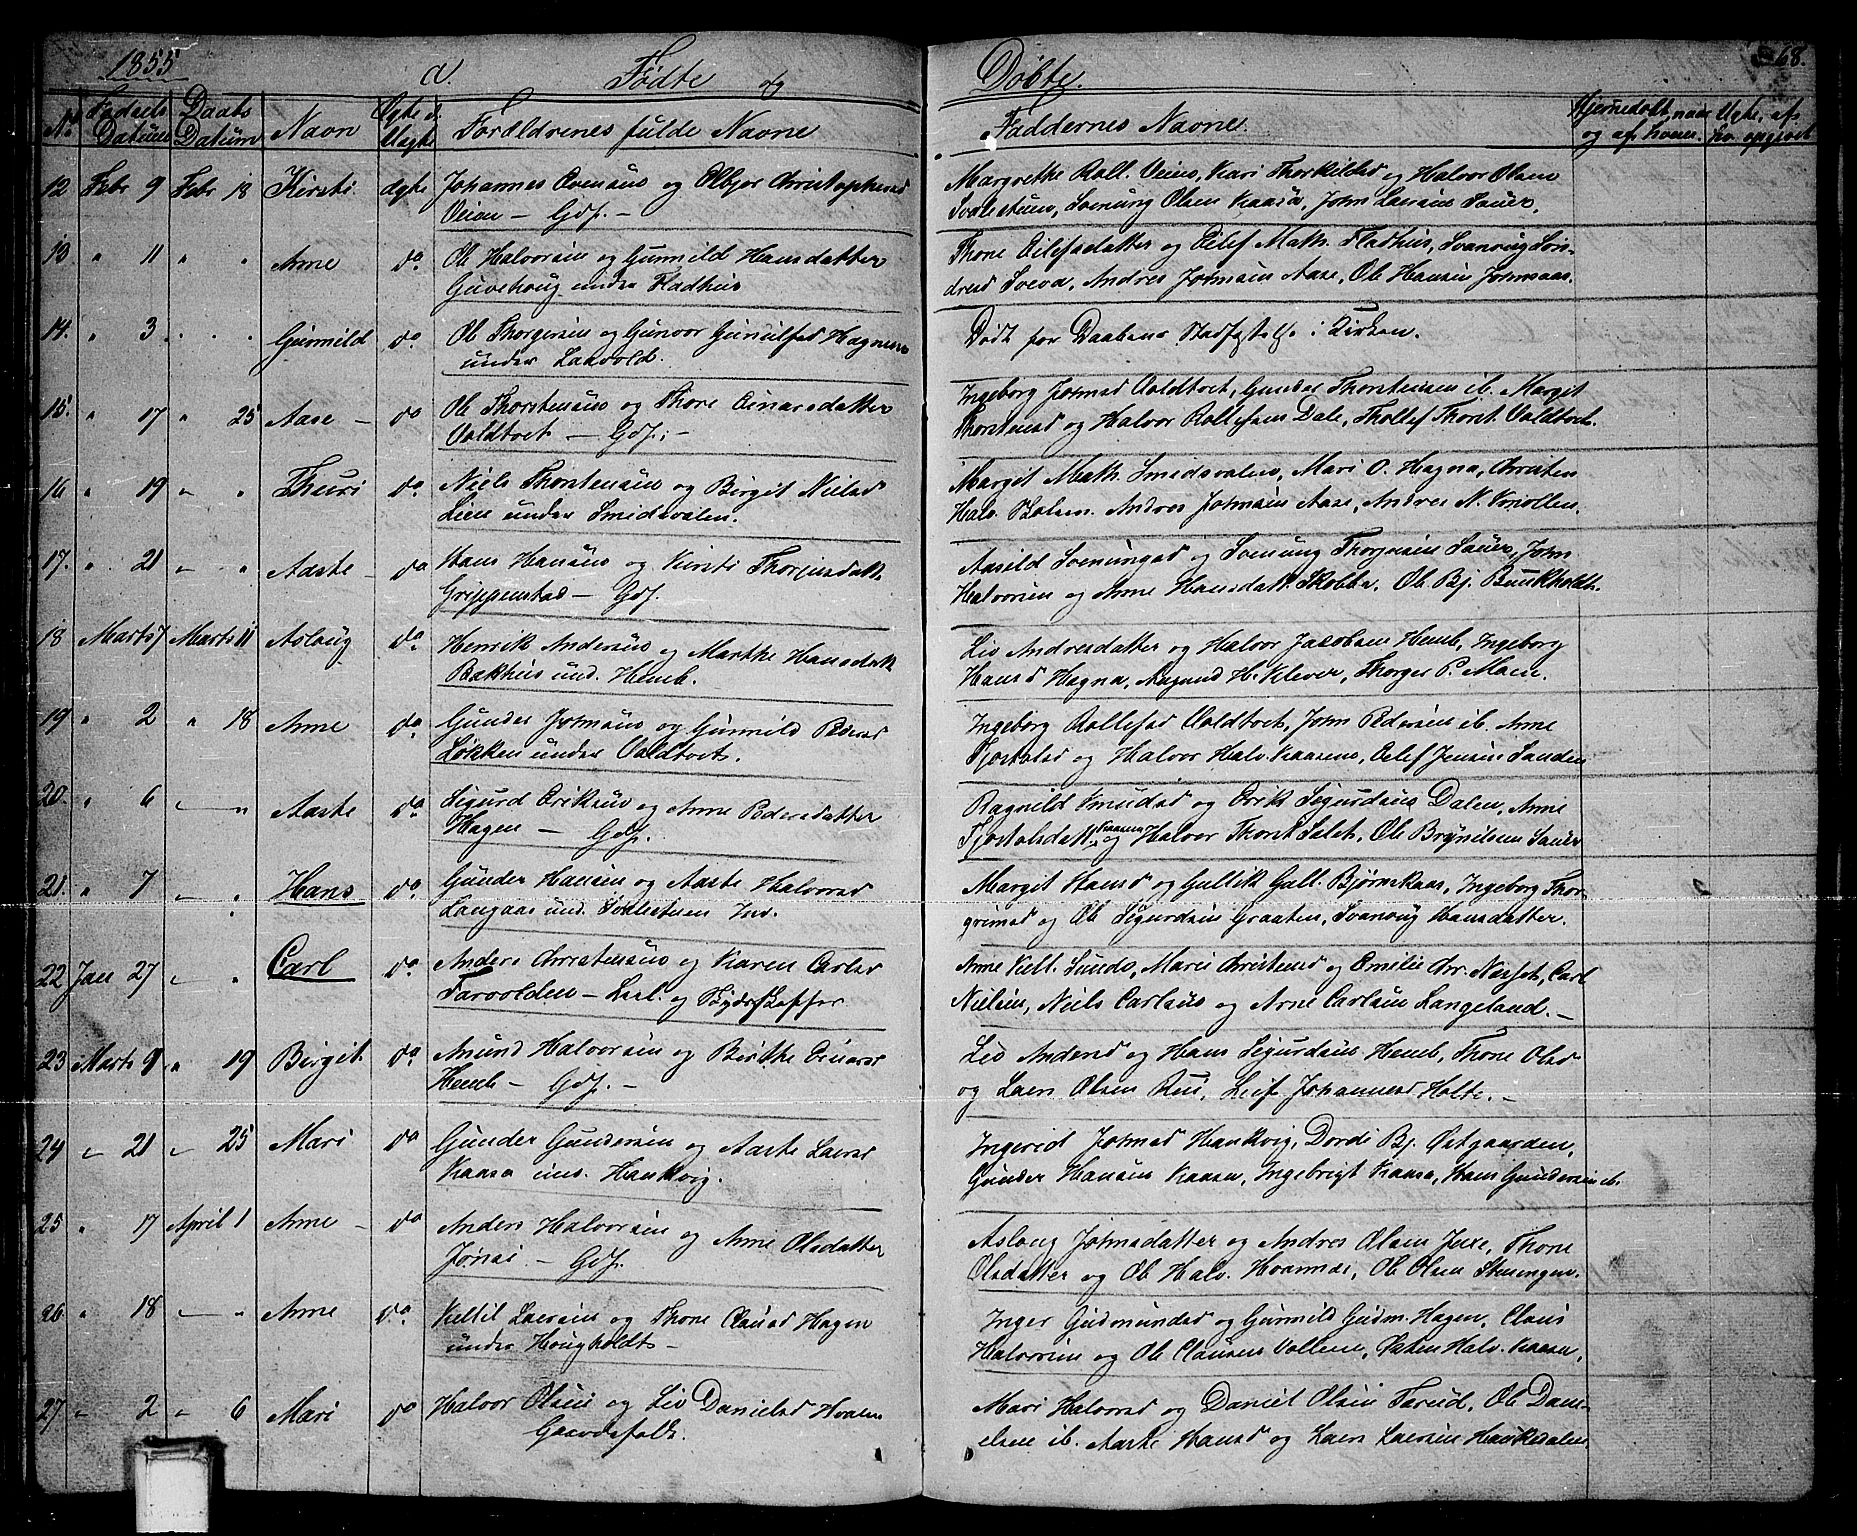 1855
a. Fødte og Døbte.
68.
No Fødsels Datum Daabs Datum Navn Ægte el. Uægte Forældrenes fulde Navne Faddernes Navne Hjemmedøbt, naar og af hvem.
12 Febr 9 Febr 18 Kirsti ægte Johannes Evensøns og Olbjør Christophersd
Veien — Gdf. —
Margrethe Roll. Veiens, Kari Thorkildsd og Halvor Olsen
Svalestuens, Svenung Olsen Kaasa, John Laersens Sauer.
13 " 11 " " Anne do Ole Halvorsen og Gunnild Hansdatter
under Fladhus
Thone Eilefsdatter og Eilef Math. Fladhus,
Andres Johnsen Aase, Ole Hansen Johnsaas.
14. " 3 " " Gunnild do Ole Thorgersen og Gunvor Gunulfsd Hagnen
under Laavold.
Død før Daabens Stadfæstelse i Kirken.
15. " 17 " 25 Aase — do Ole Thorstensens og Thore Einarsdatter
Valdtvet — Gdf. —
Ingeborg Johnsd Valdtvet, Gunder Thorstensen ib. Margit
Thorstensd og Halvor Rollefsen Dale, Thollef Thorst. Valdtvet.
16 " 19 " " Thuri do Niels Thorstensøns og Birgit Nielsd
Lien under Smidsvalen.
Margit Math. Smidsvalens, Mari O. Hagna, Christen
Halv. Andres Johnsen Aase, Andres N. Knollen.
17. " 21 " " Aaste — do Hans Hansens og Kirsti Thorjusdatt.
Grippenstad — Gdf.
Aasild Svenungsd og Svenung Thorjusen Sauer, John
Halvorsen og Anne Hansdatt. Skobba, Ole Bj. Bunkholdt.
18 Marts 7 Marts 11 Aslaug do Henrik Andersøns og Marthe Hansdatt
Bakhus und. Hemb.
Liv Andresdatter og Halvor Jacobsen Hemb, Ingeborg
Hansd Hagna, Aagund H. Klever, Thorger P. Moen.
19 " 2 " 18 Anne do Gunder Johnsøns og Gunnild Pedersd
Løkken under Valdtvet.
Ingeborg Rollefsd Valdtvet, John Pedersen ib. Anne
Fjostolsd og Halvor Halv. Kaasens, Eilef Jensen Sanden
20. " 6 " " Aaste do Sigurd Eriksøns og Anne Pedersdatter
Hagen — Gdf.
Ragnild Knudsd og Erik Sigurdsøns Dalen, Anne
Fjostolsdatt. Kaasens og Halvor Thorst. Salet, Ole Brynilsens Sauer
21. " 7 " " Hans do Gunder Hansen og Aaste Halvorsd
Langaas und. Svalestuen Ind.
Margit Hansd og Gullik Gull. Bjørnskaas, Ingeborg Thor-
grimsd og Ole Sigurdsen Graaten, Svanaug Hansdatter.
22 Jan 27 " " Carl do Anders Christensøns og Karen Carlsd
Farvolden —
Anne Kitt. Sunds, Maren Christensd og Emilie Chr. Næsset, Carl
Nielsen, Niels Carlsøns og Arne Carlsen Langeland. —
23 Marts 9 " 19 Birgit do Amund Halvorsen og Birthe Einarsd
Hemb — Gdf. —
Liv Andersd og Hans Sigurdsøns Hemb, Thone Olsd
og Laers Olsen Rui, Leif Johannesd Holte. —
24 " 21 " 25 Mari do Gunder Gundersen og Aaste Laersd
Kaasa und. Haukvig.
Ingerid Johnsd Haukvig, Dordi Bj. Østgaarden,
Gunder Hansens Kaasen, Ingebrigt Kaasa, Hans Gundersen ib.
25 " 17 April 1 Anne — do Anders Halvorsen og Anne Olsdatter
Jønsi — Gdf.
Aslaug Johnsdatter og Andres Olsen Juve, Thone
Olsdatter og Ole Halv. Hvammen, Ole Olsen Stusingen.
26. " 18 " " Anne do Kittil Laersen og Thone Clausd Hagen
under Houghholdt —
Inger Gudmundsd og Gunnild Gudm. Hagen, Claus
Halvorsen og Ole Clausens Vollene, Østen Halv. Kaasen.
27 " 2 " 6 Mari do Halvor Olsen og Liv Danielsd Hvalen
Gaardsfolk.
Mari Halvorsd og Daniel Olsen Farud, Ole Dani-
elsen ib. Aaste Hansd og Laers Laersen Haukedalen